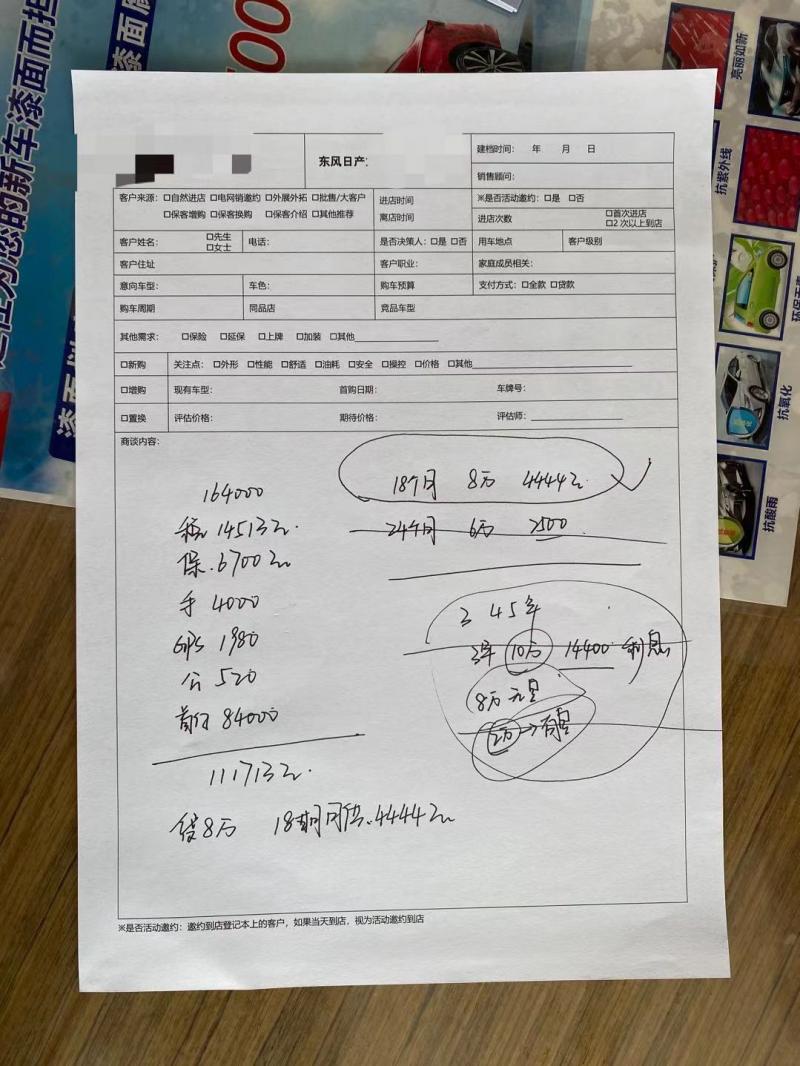 走任为您的新车漆面而担
00
亮丽如新
抗紫外线
抗氧化
抗酸雨
东风日产:
建档时间: 年 月 日
销售顾问:
客户来源: □自然进店 □电网销邀约 □外展外拓 □批售/大客户
□保客增购 □保客换购 □保客介绍 □其他推荐
进店时间
离店时间
※是否活动邀约: □是 □否
进店次数 □首次进店
□2 次以上到店
客户姓名: □先生
□女士
电话:
是否决策人: □是 □否
用车地点
客户级别
客户住址
客户职业:
家庭成员相关:
意向车型:
车色:
购车预算
支付方式: □全款 □贷款
购车周期
同品店
竞品车型
其他需求: □保险 □延保 □上牌 □加装 □其他
□新购 关注点: □外形 □性能 □舒适 □油耗 □安全 □操控 □价格 □其他
□增购 现有车型: 首购日期: 车牌号:
□置换 评估价格: 期待价格: 评估师:
商谈内容:
164000
税 14513元.
保.6700元
手 4000
GPS 1980
公 520
首付 84000
111713元.
贷8万 18期月供.4444元
18个月 8万 4444元
24个月 6万 2500
3 4 5年
3年 10万 14400 利息
8万 元息
2万→有息
※是否活动邀约: 邀约到店登记本上的客户, 如果当天到店, 视为活动邀约到店